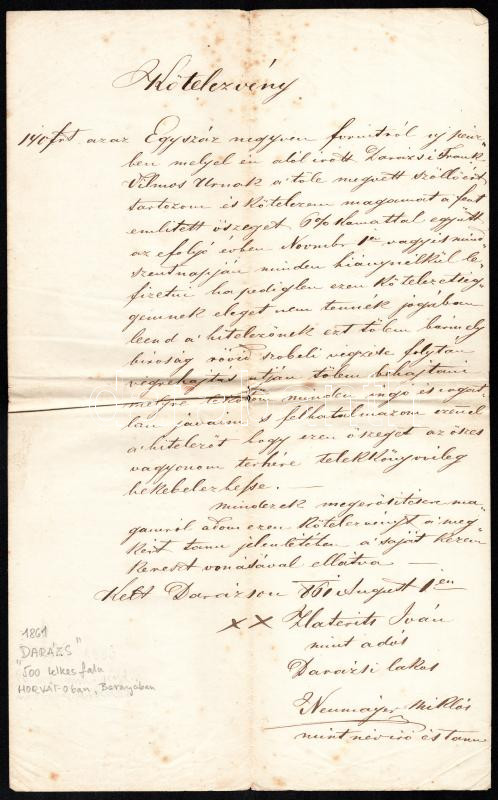 Kötelezvény
140 frt azaz Egyszáz negyven forintról uj pénz-
ben melyel én alól irott Darázsi Frank
Vilmos Urnak a tőle megvett szőllőért
tartozom és kötelezem magamat a fent
emlitett öszeget 6% kamattal együtt
az efolyó évben Novmbr 1én vagyis mind
szentnapján minden hiány nélkül le-
fizetni ha pediglen ezen kötelezetség-
gemnek eleget nem tennék jogában
leend a hitelezőnek ezt tőlem bármely
biróság rövid szobeli végzése folytán
végrehajtás utján tőlem béhajtani
melyre lekötöm minden ingó és ingat-
lan javaim s felhatalmazom ezenel
a hitelezőt hogy ezen öszeget az öszes
vagyonom terhére telekkönyvileg
bekebelezhesse. —
mindezek megerősitésére ma-
gamról adom ezen kötelezvényt a meg-
kért tanu jelenlétében a saját kezem
kereszt vonásával ellátva —
Kelt Darázson 861 August 1én
xx Zlaterits Iván
mint adós
Darázsi lakos
Neumájer Miklós
mint néviró és tanu
1861
"DARÁZS"
"500 lelkes falu
HORVÁT-Oban, Baranyában